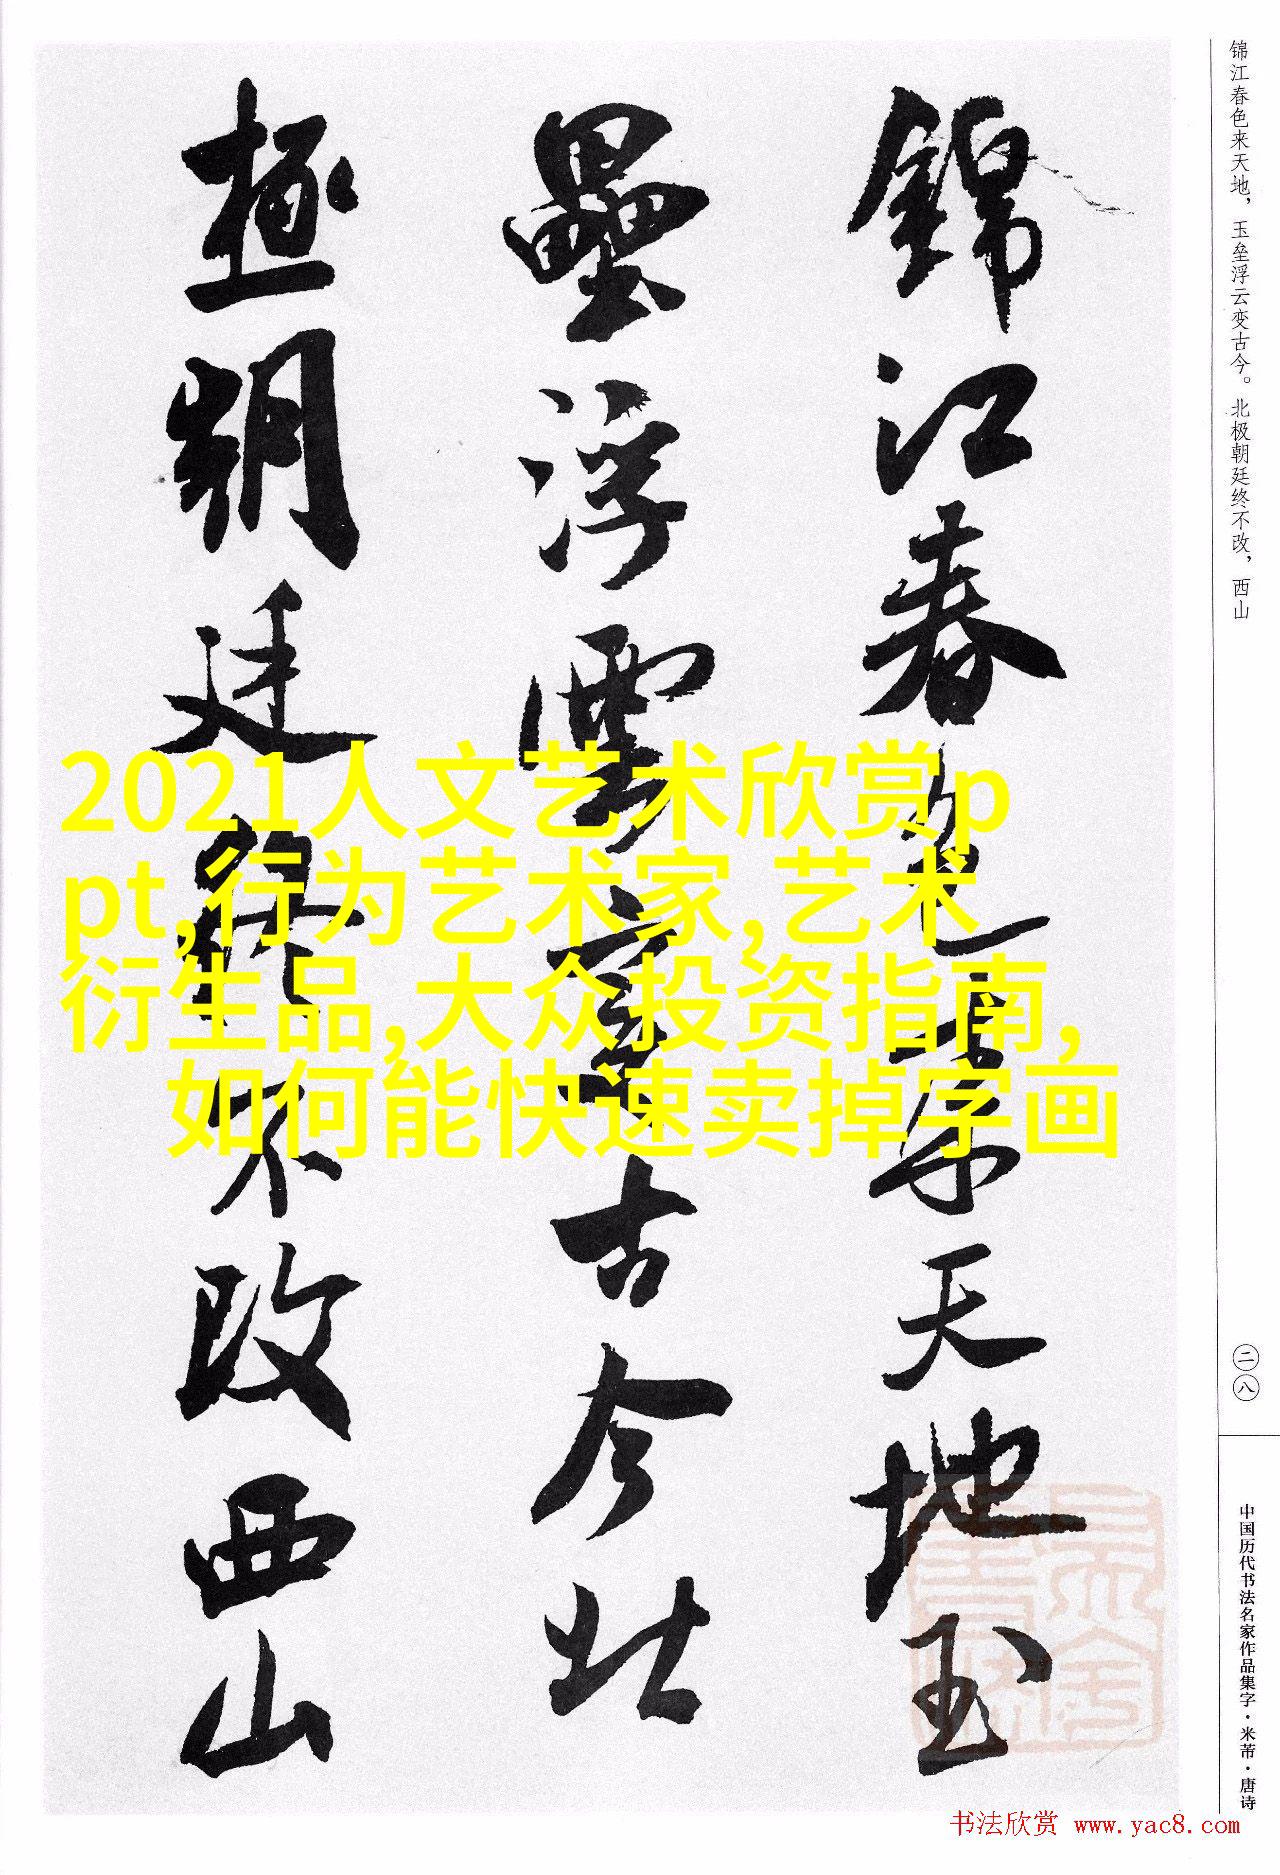 锦江春色来天地，玉垒浮云变古今。北极朝廷终不改，西山
錦江春色来天地玉
壘浮雲變古今北
極朝廷終不改西山
2021人文艺术欣赏p
pt,行为艺术家,艺术
衍生品,大众投资指南,
如何能快速卖掉字画
二八
中国历代书法名家作品集字·米芾·唐诗
书法欣赏 www.yac8.com